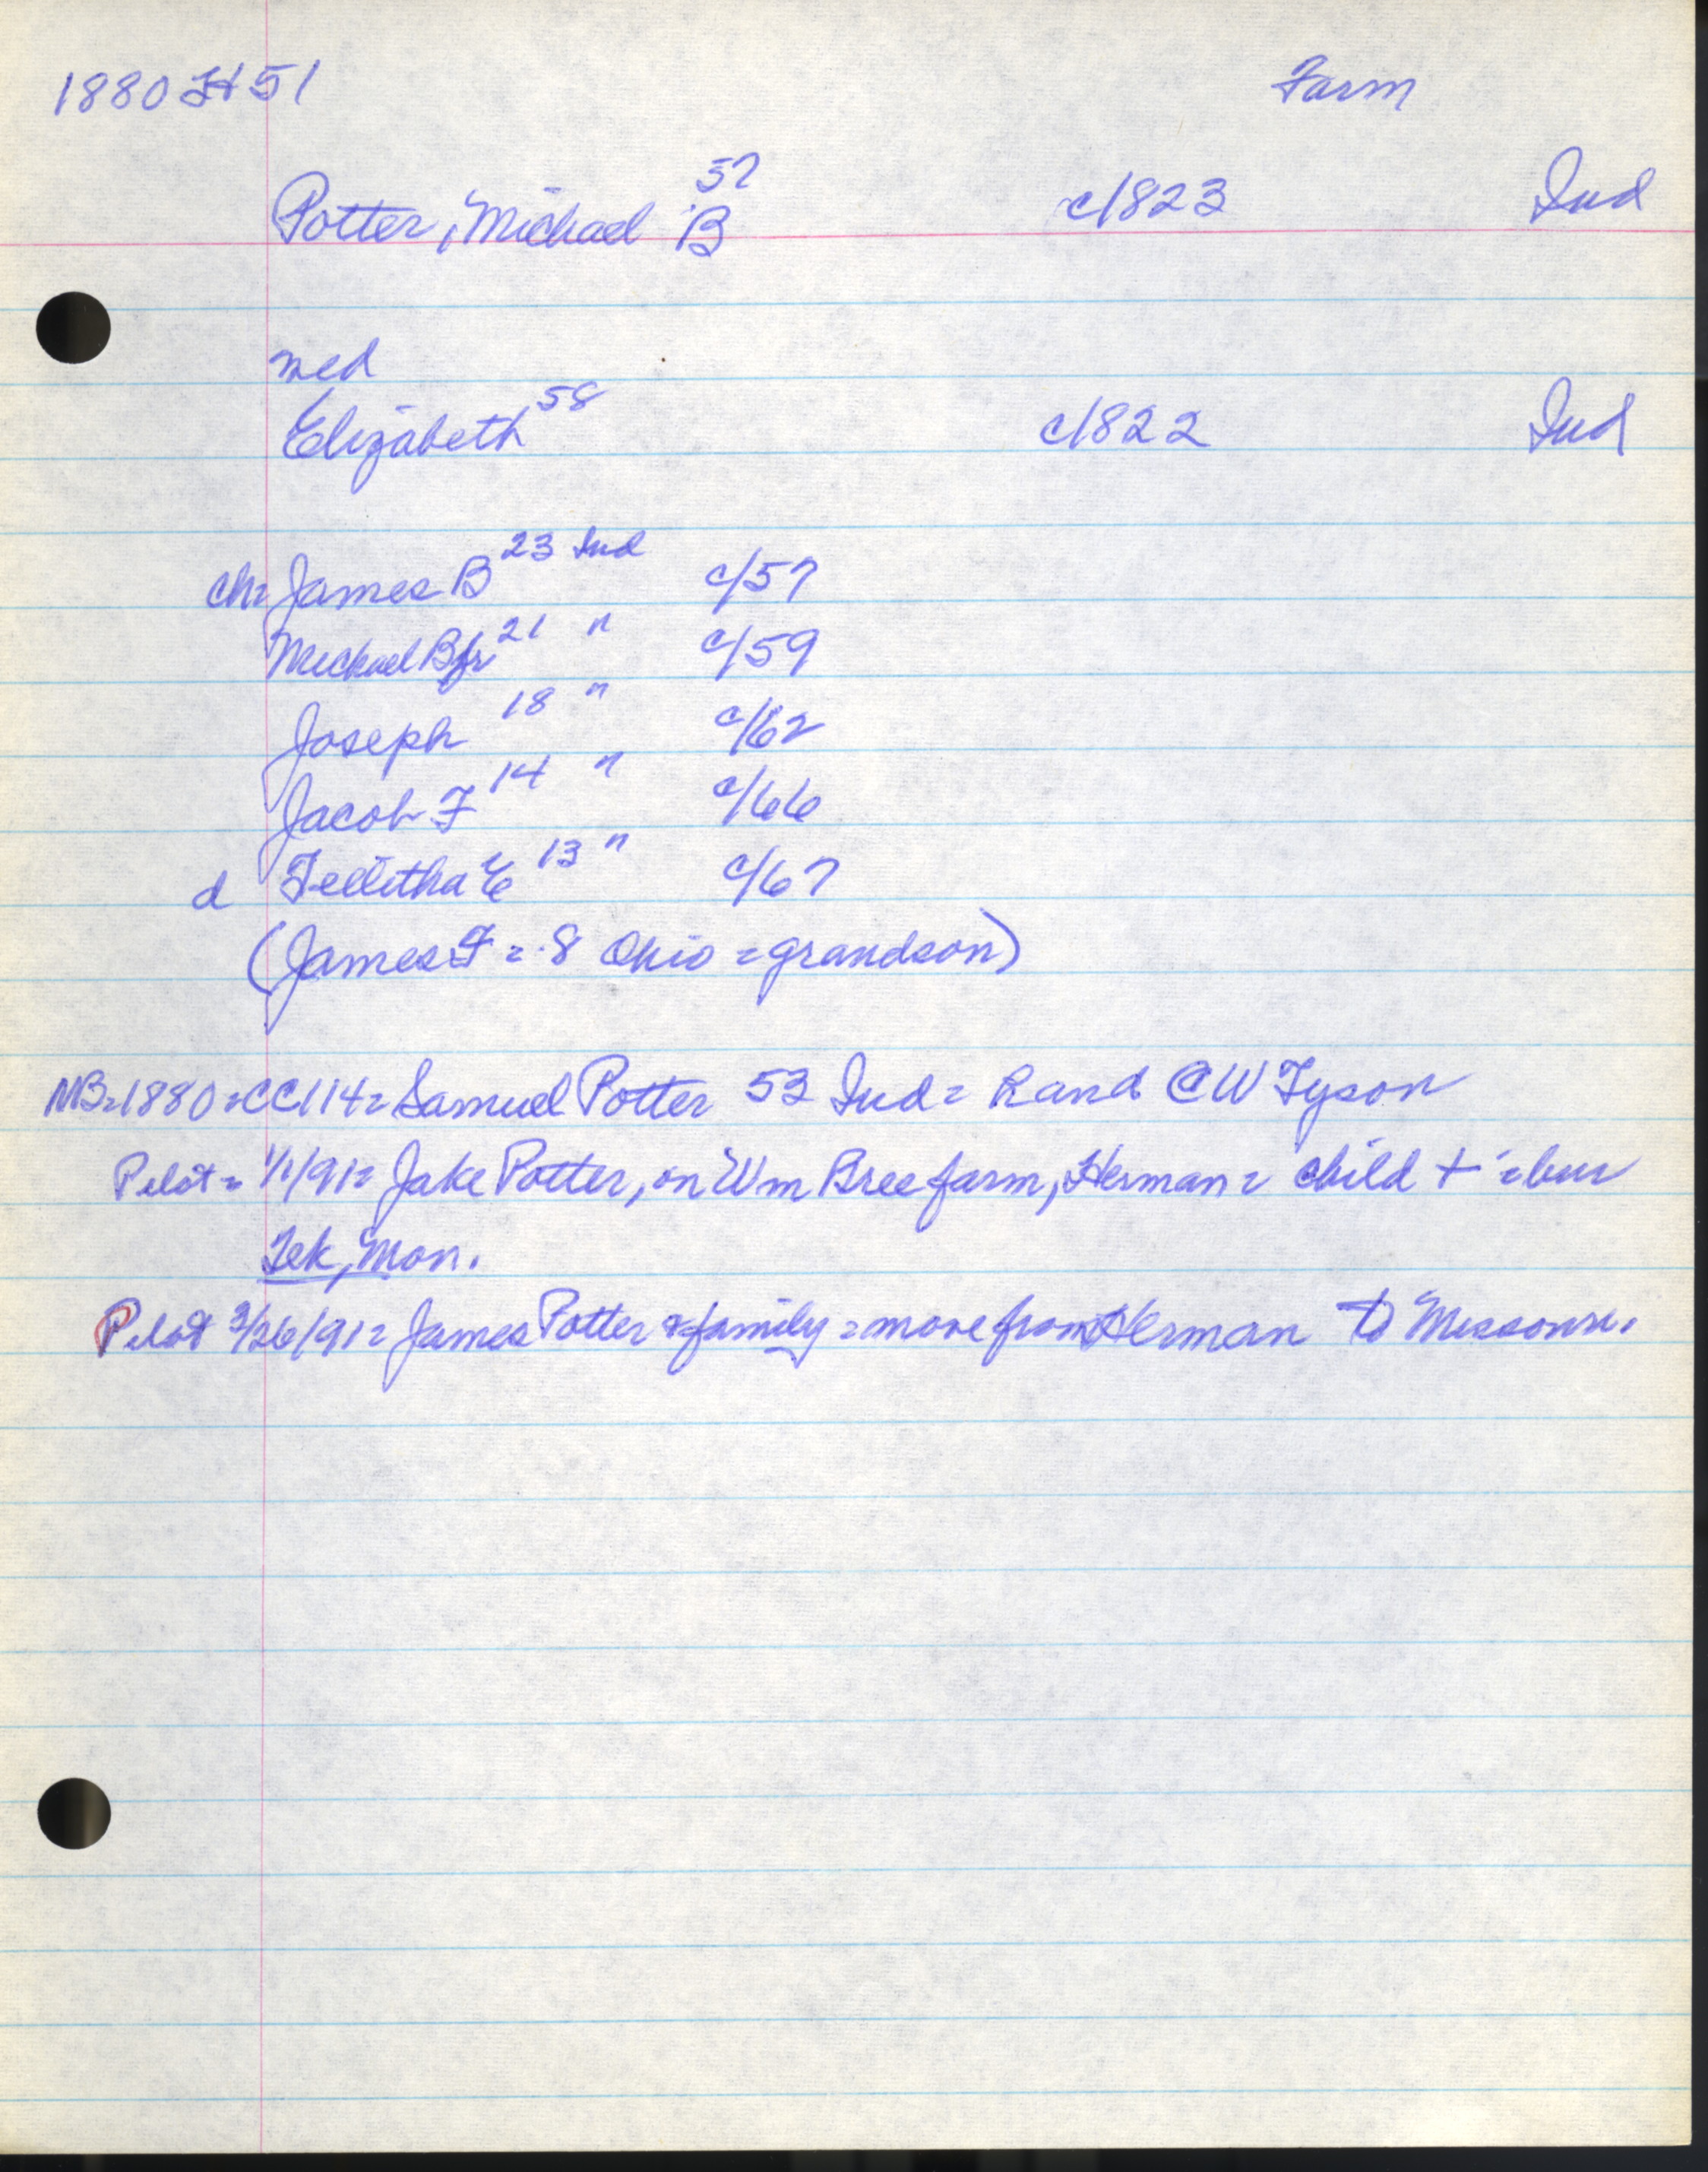 1880 H 51 Farm
Potter, Michael B 57 c/1823 Ind
med
Elizabeth 58 c/1822 Ind
ch= James B 23 Ind c/57
Michael B Jr 21 " c/59
Joseph 18 " c/62
Jacob F 14 " c/66
d Tellitha E 13 " c/67
(James F = 8 Ohio = grandson)
NB=1880=CC114= Samuel Potter 53 Ind = R and CW Tyson
Pilot = 1/1/91= Jake Potter, on Wm Bree farm, Herman = child + = bur
Tek, Mon.
Pilot 3/26/91= James Potter & family = move from Herman to Missouri.